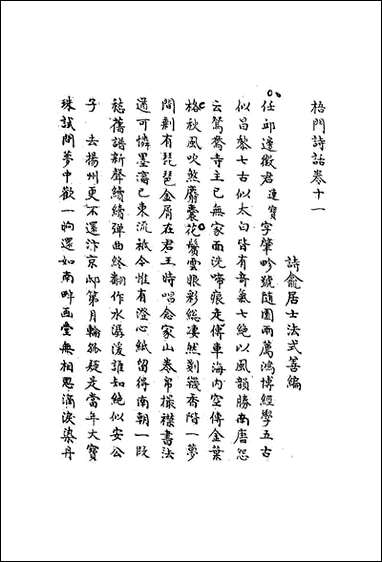 梧門詩話卷十一
詩龕居士法式善編
任邱邊徵君連寶字肇畛號隨園兩薦鴻博經學五古
似昌黎七古似太白皆有奇氣七絕以風韻勝南唐怨
云鴛鴦寺主已無家面洗啼痕走傳車海内空傳金葉
格秋風吹煞麝囊花鬢雲眼彩總凄然剗襪香階一夢
間剩有琵琶金屑在君王時唱念家山卷帛撮襟書法
遒可憐墨瀋已東流祗今惟有澄心紙留得南朝一段
愁舊譜新聲續續彈曲終翻作水潺湲誰知絕似安公
子去揚州更不還汴京邸第月輪終疑是當年大寶
珠試問夢中歡一晌還如南畔畫堂無相思滴淚染丹